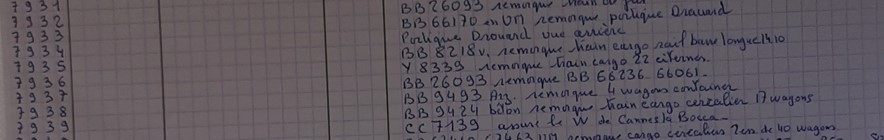 7931 BB 26093 remorque train
7932 BB 66170 en UM remorque portique Drouard
7933 Portique Drouard vue arrière
7934 BB 8218 remorque train cargo rail barre longue
7935 Y 8339 remorque train cargo 22 citernes.
7936 BB 26093 remorque BB 66236. 66061.
7937 BB 9493 Arz. remorque 4 wagons container
7938 BB 9424 béton remorque train cargo céréalier 17 wagons
7939 CC 7139 assure le W de Cannes la Bocca
remorque cargo céréalier de 40 wagons